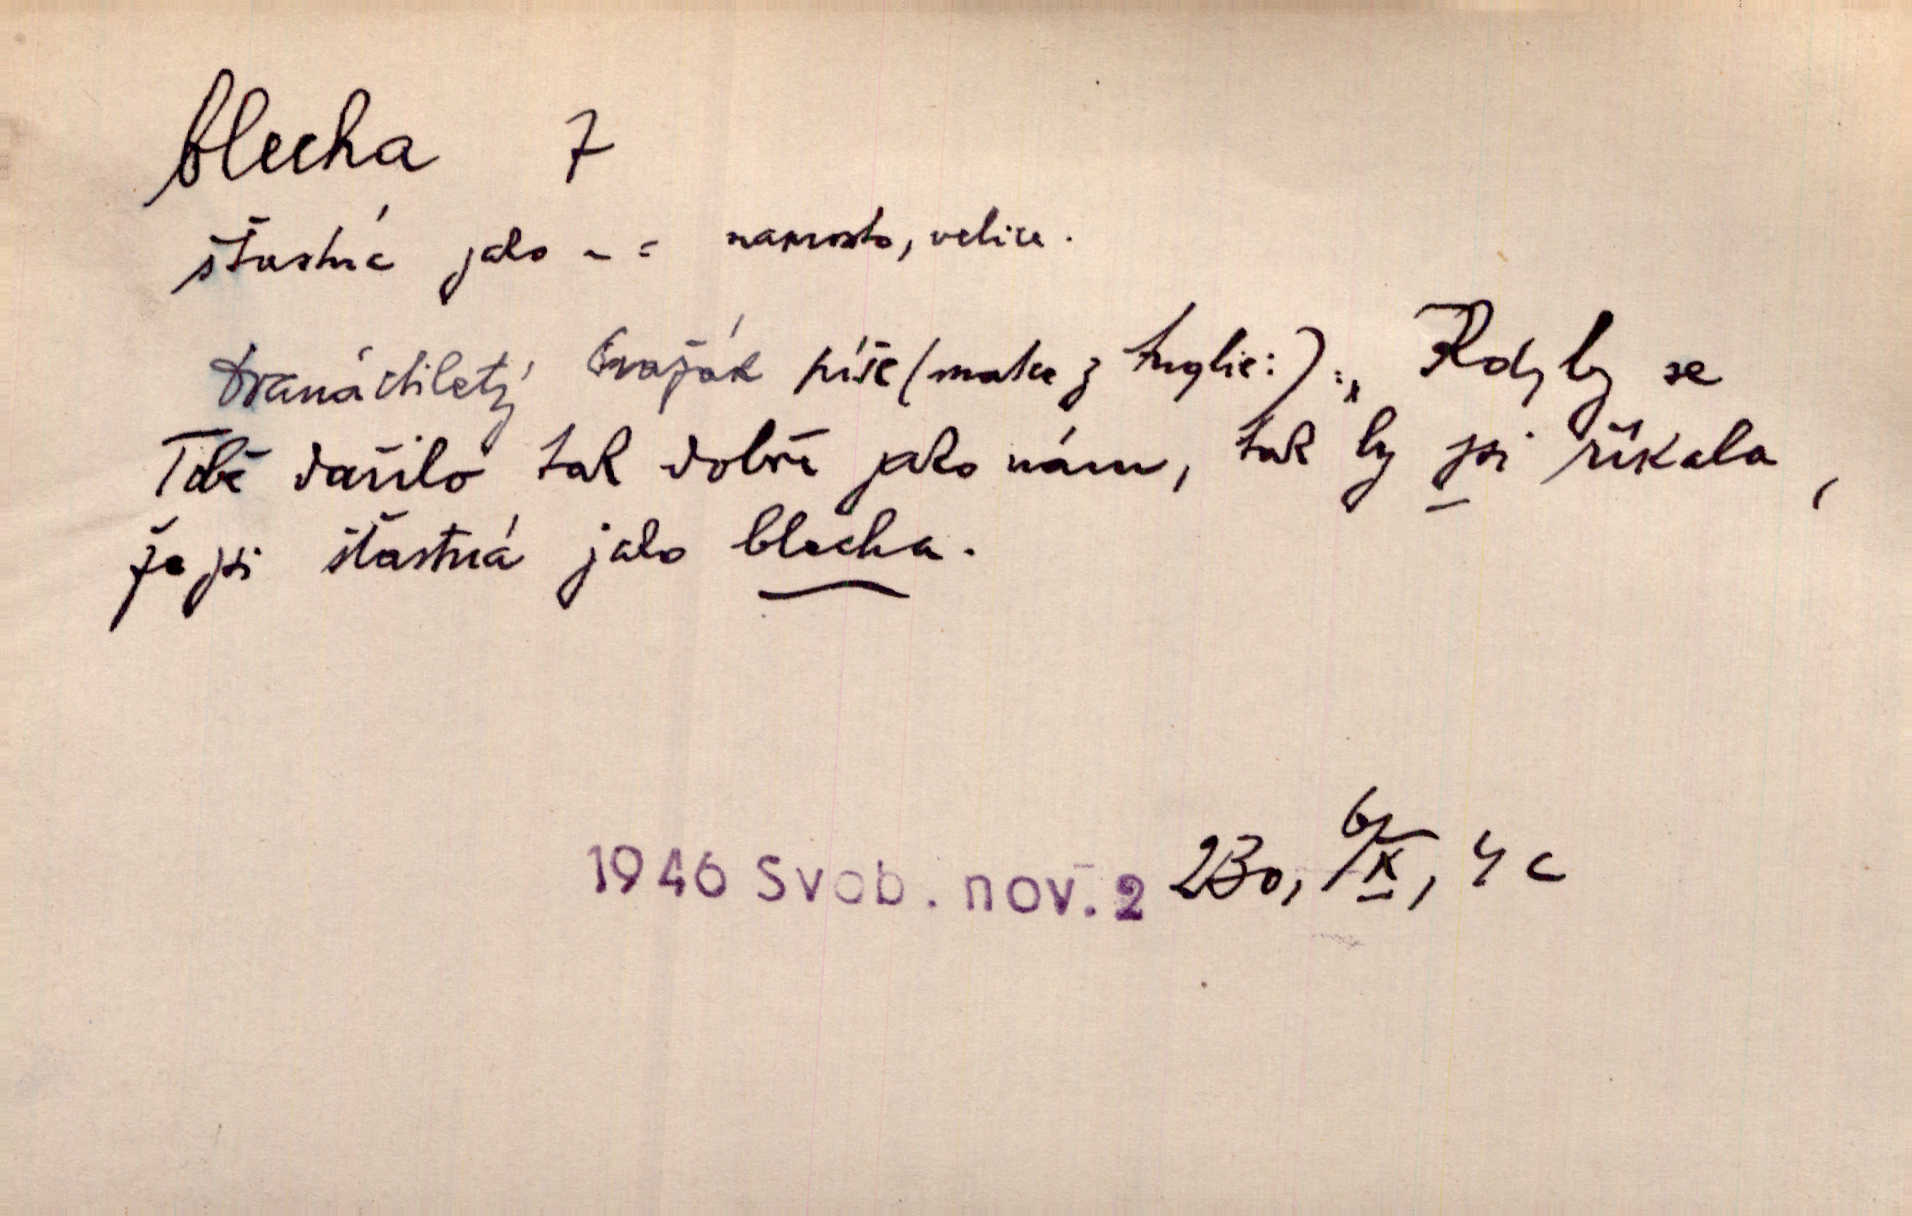 blecha 7
šťastná jako ~ = naprosto, velice.
dvanáctiletý píše (matce z Anglie:) : „Kdyby se
Tobě dařilo tak dobře jako nám, tak by jsi říkala,
že jsi šťastná jako blecha.
1946 Svob. nov. 2 230, 6/X, 4 c